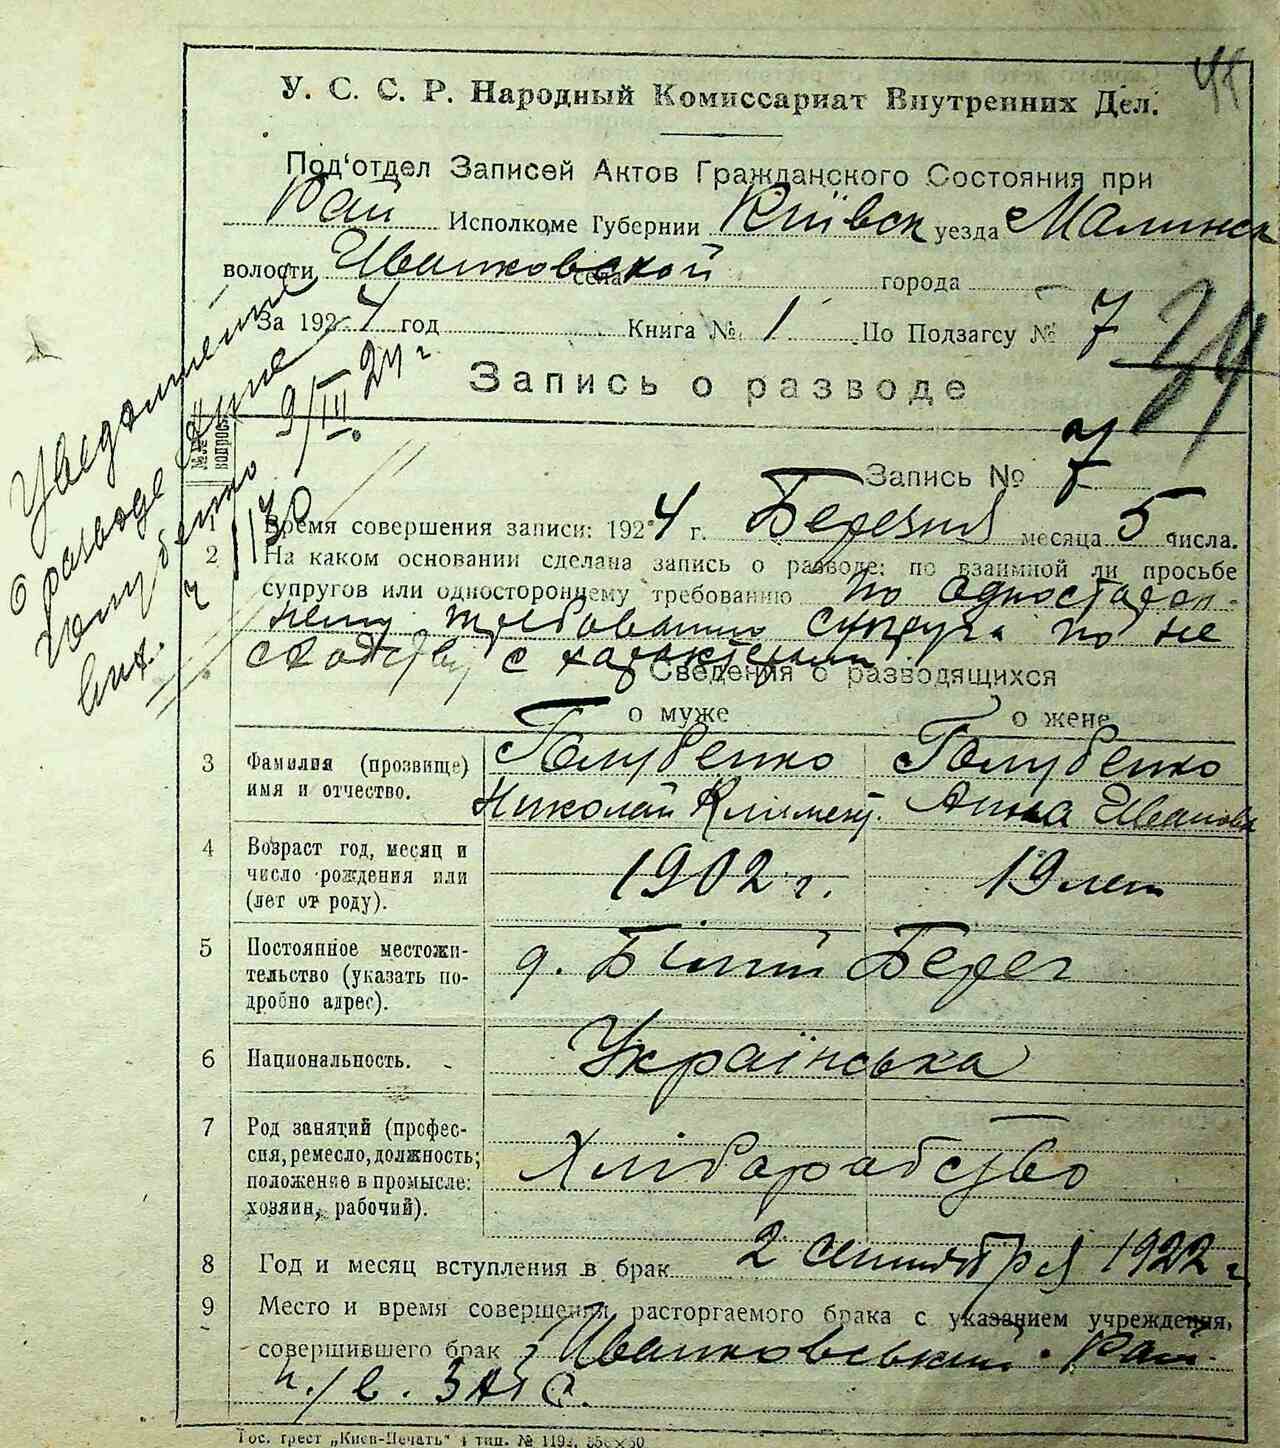 У. С. С. Р. Народный Комиссариат Внутренних Дел.
Под‘отдел Записей Актов Гражданского Состояния при
Рай Исполкоме Губернии Київск уезда Малинск
волости Иванковской села города
За 192 4 год Книга № 1 По Подзагсу № 7
Запись о разводе
№№ вопрос.
Запись № 7
1 Время совершения записи: 192 4 г. Березня месяца 5 числа.
2 На каком основании сделана запись о разводе: по взаимной ли просьбе
супругов или одностороннему требованию по односторон-
нему требованию супруга по не
сходству с характерами
Сведения о разводящихся
о муже о жене
3 Фамилия (прозвище) имя и отчество.
Голубенко Голубенко
Николай Климент. Анна Иванова
4 Возраст год, месяц и число рождения или (лет от роду).
1902 г. 19 лет
5 Постоянное местожительство (указать подробно адрес).
д. Білий Берег
6 Национальность. Українська
7 Род занятий (профессия, ремесло, должность; положение в промысле: хозяин, рабочий).
Хліборобство
8 Год и месяц вступления в брак 2 сентября 1922 г
9 Место и время совершения расторгаемого брака с указанием учреждения,
совершившего брак Иванковський Рай
п./в. ЗАГС.
Гос. трест „Киев-Печать“ 4 тип. № 119
Уведомление
о разводе Анне
Голубенко
9/III 24 г
130